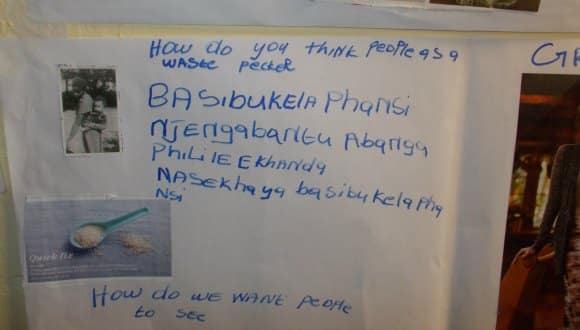 HOW do you think people as a
WASTE PECKER
GR
BASIBUKELA PhaNSi
NJENGABANTU Abanga
PhiLiLE EKhANDA
NASEKhaya basibukela Pha
NSi
Quick fix
HOW do WE WANT PEOPLE
to SEE